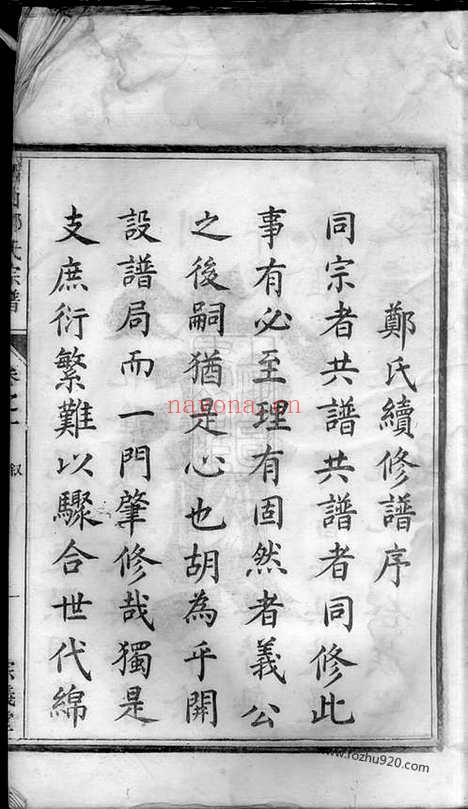 鄭氏續修譜序
同宗者共譜共譜者同修此
事有必至理有固然者義公
之後嗣猶是心也胡為乎開
設譜局而一門肇修哉獨是
支庶衍繁難以驟合世代綿
氏宗譜
卷之
叙
一
義堂
nayona.cn
www.fozhu920.com